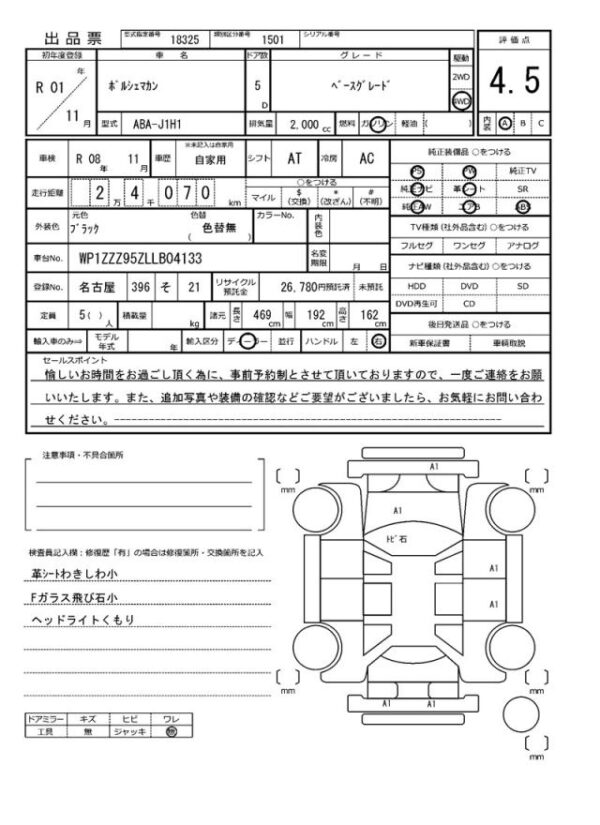 出品票 型式指定番号 18325 類別区分番号 1501 シリアル番号
評価点
初年度登録 車名 ドア数 グレード 駆動
R 01 年 11 月 ポルシェマカン 5 D ベースグレード 2WD 4WD
4.5
型式 ABA-J1H1 排気量 2,000 cc 燃料 ガソリン 軽油 ( ) 内装 A B C
車検 R 08 年 11 月 車歴 ※未記入は自家用 自家用 シフト AT 冷房 AC
純正装備品 ○をつける
PS PW 純正TV
純正ナビ 革シート SR
純正AW エアB ABS
走行距離 2 万 4 千 0 7 0 km
○をつける
マイル $ (交換) * (改ざん) # (不明)
外装色 元色 ブラック 色替 ( 色替無 ) カラーNo. 内装色
TV種類(社外品含む)○をつける
フルセグ ワンセグ アナログ
車台No. WP1ZZZ95ZLLB04133 名変期限 月 日
ナビ種類(社外品含む)○をつける
HDD DVD SD
DVD再生可 CD
登録No. 名古屋 396 そ 21 リサイクル預託金 26,780円預託済 未預託
定員 5( )人 積載量 kg 諸元 長さ 469 cm 幅 192 cm 高さ 162 cm
後日発送品 ○をつける
新車保証書 車輌取説
輸入車のみ⇒ モデル年式 年 輸入区分 ディーラー 並行 ハンドル 左 右
セールスポイント
愉しいお時間をお過ごし頂く為に、事前予約制とさせて頂いておりますので、一度ご連絡をお願
いいたします。また、追加写真や装備の確認などご要望がございましたら、お気軽にお問い合わ
せください。
注意事項・不具合箇所
検査員記入欄：修復歴「有」の場合は修復箇所・交換箇所を記入
革シートわきしわ小
Fガラス飛び石小
ヘッドライトくもり
ドアミラー キズ ヒビ ワレ
工具 無 ジャッキ 無
A1
mm
mm
A1
トビ石
A1
A1
mm
mm
A1 A1
mm